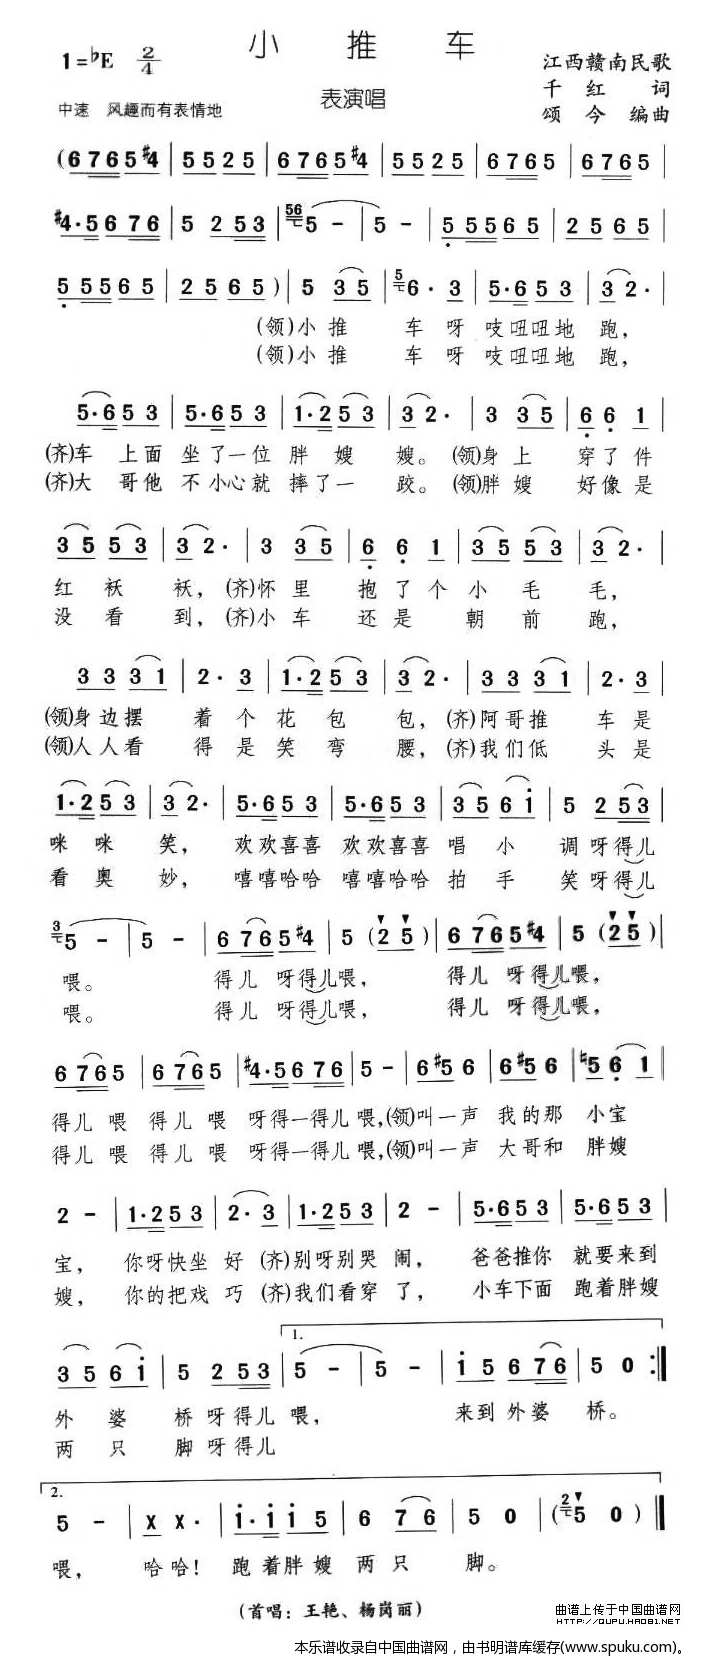 小 推 车
1=♭E 2/4
江西赣南民歌
表演唱
千 红 词
中速 风趣而有表情地
颂 今 编曲
(6765#4 | 5525 | 6765#4 | 5525 | 6765 | 6765
#4·5676 | 5 253 | 56 5 - | 5 - | 55565 | 2565
55565 | 2565) | 5 35 | 5 6·3 | 5·653 | 32· |
(领)小推 车呀吱吜吜地跑,
(领)小推 车呀吱吜吜地跑,
5·653 | 5·653 | 1·253 | 32· | 3 35 | 66 1 |
(齐)车上面坐了一位胖嫂嫂。(领)身上穿了件
(齐)大哥他不小心就摔了一跤。(领)胖嫂好像是
3553 | 32· | 3 35 | 66 1 | 3553 | 32· |
红袄袄,(齐)怀里抱了个小毛毛,
没看到,(齐)小车还是朝前跑,
3331 | 2·3 | 1·253 | 32· | 3331 | 2·3 |
(领)身边摆着个花包包,(齐)阿哥推车是
(领)人人看得是笑弯腰,(齐)我们低头是
1·253 | 32· | 5·653 | 5·653 | 3561 | 5 253 |
咪咪笑,欢欢喜喜 欢欢喜喜 唱小调呀得儿
看奥妙,嘻嘻哈哈 嘻嘻哈哈 拍手笑呀得儿
3 5 - | 5 - | 6765#4 | 5 (25) | 6765#4 | 5 (25) |
喂。 得儿呀得儿喂, 得儿呀得儿喂,
喂。 得儿呀得儿喂, 得儿呀得儿喂,
6765 | 6765 | #4·5676 | 5 - | 6#56 | 6#56 | ♮561 |
得儿喂 得儿喂 呀得一得儿喂,(领)叫一声 我的那 小宝
得儿喂 得儿喂 呀得一得儿喂,(领)叫一声 大哥和 胖嫂
2 - | 1·253 | 2·3 | 1·253 | 2 - | 5·653 | 5·653 |
宝, 你呀快坐好(齐)别呀别哭闹, 爸爸推你 就要来到
嫂, 你的把戏巧(齐)我们看穿了, 小车下面 跑着胖嫂
1.
3561 | 5 253 | 5 - | 5 - | 15676 | 5 0 :||
外婆桥呀得儿喂, 来到外婆桥。
两只脚呀得儿
2.
5 - | X X· | 1·115 | 6 76 | 5 0 | (2 5 0) ||
喂, 哈哈! 跑着胖嫂两只脚。
(首唱:王艳、杨岗丽)
曲谱上传于中国曲谱网
HTTP://QUPU.HAO81.NET
本乐谱收录自中国曲谱网,由书明谱库缓存(www.spuku.com)。